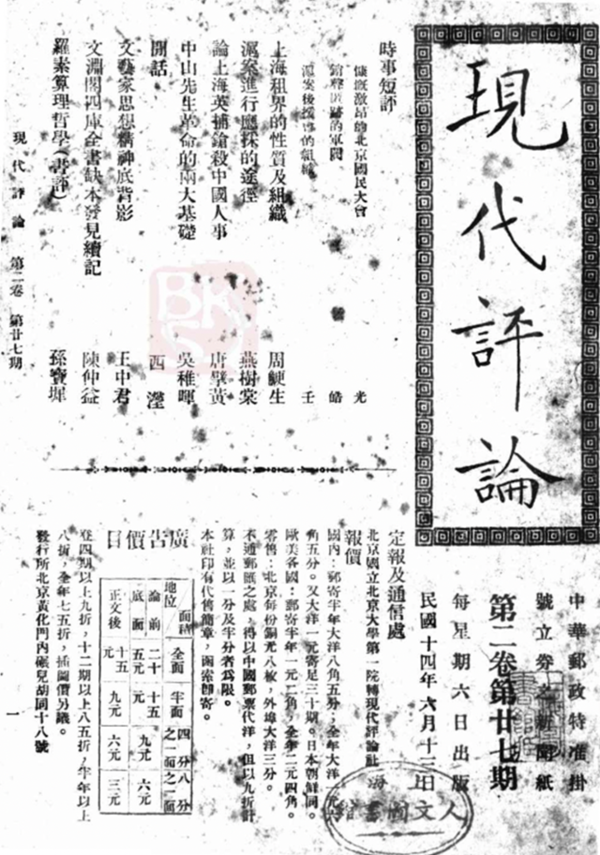 現代評論
中華郵政特准掛
號立券之新聞紙
第二卷第廿七期
每星期六日出版
民國十四年六月十三日
時事短評
慷慨激昂的北京國民大會 光
的軍閥 皓
滬案後援的組織 壬
上海租界的性質及組織 周鯁生
滬案進行應採的途徑 燕樹棠
論上海英捕鎗殺中國人事 唐擘黃
中山先生革命的兩大基礎 吳稚暉
閒話 西瀅
文藝家思想精神底背影 王中君
文淵閣四庫全書缺本發見續記 陳仲益
羅素算理哲學(書評) 孫寶墀
現代評論 第二卷 第廿七期
定報及通信處
北京國立北京大學第一院轉現代評論社
報價
國內:郵寄半年大洋八角五分;全年大洋一元六
角五分。又大洋一元寄足三十期。日本朝鮮同。
歐美各國:郵寄半年一元二角,全年二元四角。
零售:北京每份銅元八枚,外埠大洋三分。
不通郵匯之處,得以中國郵票代洋,但以九折計
算,並以一分及半分者為限。
本社印有代售簡章,函索即寄。
廣告價目
地位 面積 全面 半面 四分之一面 八分之一面
論前 二十元 十五元
底面 五元 九元 六元
正文後 十五元 九元 六元 三元
登四期以上九折,十二期以上八五折,半年以上
八折,全年七五折,插圖價另議。
發行所北京黃化門內碾兒胡同十八號
一
人文圖書館